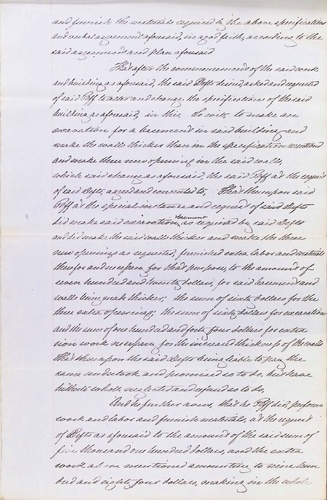 and furnish the materials required by the above specification
and verbal agreement aforesaid, in good faith, according to the
said agreement and plan aforesaid
That after the commencement of the said work
and building as aforesaid, the said Defts desired, asked and requested
of said Plff to alter and change the specifications of the said
building as aforesaid, in this to wit, to make an
excavation for a basement in said building and
make the walls thicker than in the specification mentioned
and make three new openings in the said walls,
which said change as aforesaid, the said Plff at the request
of said Defts, agreed and consented to, That thereupon said
Plff at the special instance and request of said Defts
did make said excavation basement as required by said Defts
and did make the said walls thicker and make the three
new openings as requested, furnished extra labor and materials
therefor and necessary for that purpose to the amount of
seven hundred and twenty dollars, for said basement and
walls being made thicker, the sum of sixty dollars for the
three extra openings, the sum of sixty dollars for excavation
and the sum of four hundred and forty four dollars for extra
work necessary for the increased thickness of the walls
That thereupon the said Defts being liable to pay the
same undertook and promised so to do, but have
hitherto wholly neglected and refused so to do,
And he further avers that he Plff did, perform
work and labor and furnish materials, at the request
of Defts as aforesaid to the amount of the said sum of
five thousand one hundred dollars, and the extra
work above mentioned amounting to nine hun
dred and eighty four dollars, making in the whole